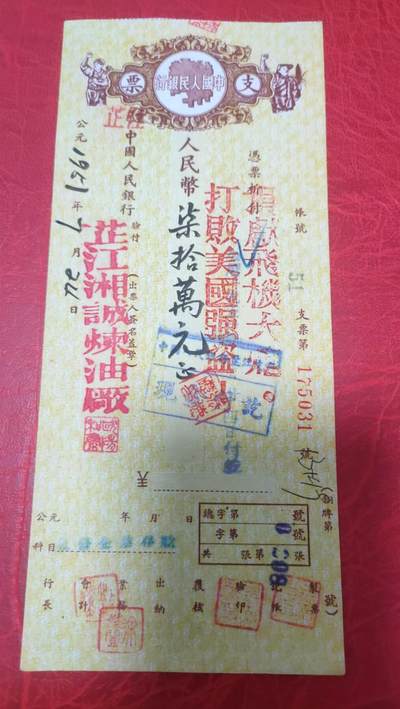 支
中國人民銀行
票
芷江
帳號 51 支票第 175031 號
憑票祈付
捐獻飛機大炮。
打敗美國強盜!
人民幣 柒拾萬元正
中國人民銀行 驗付
(出票人簽名蓋章)
芷江湘誠煉油廠
公元 1951 年 7 月 日
現
訖
付
銅牌第 號)
公元 年 月 日
總字第 號
字第 號
共 張第 張
0308
科目
行長
會計
業務
出納
覆核
驗印
記帳